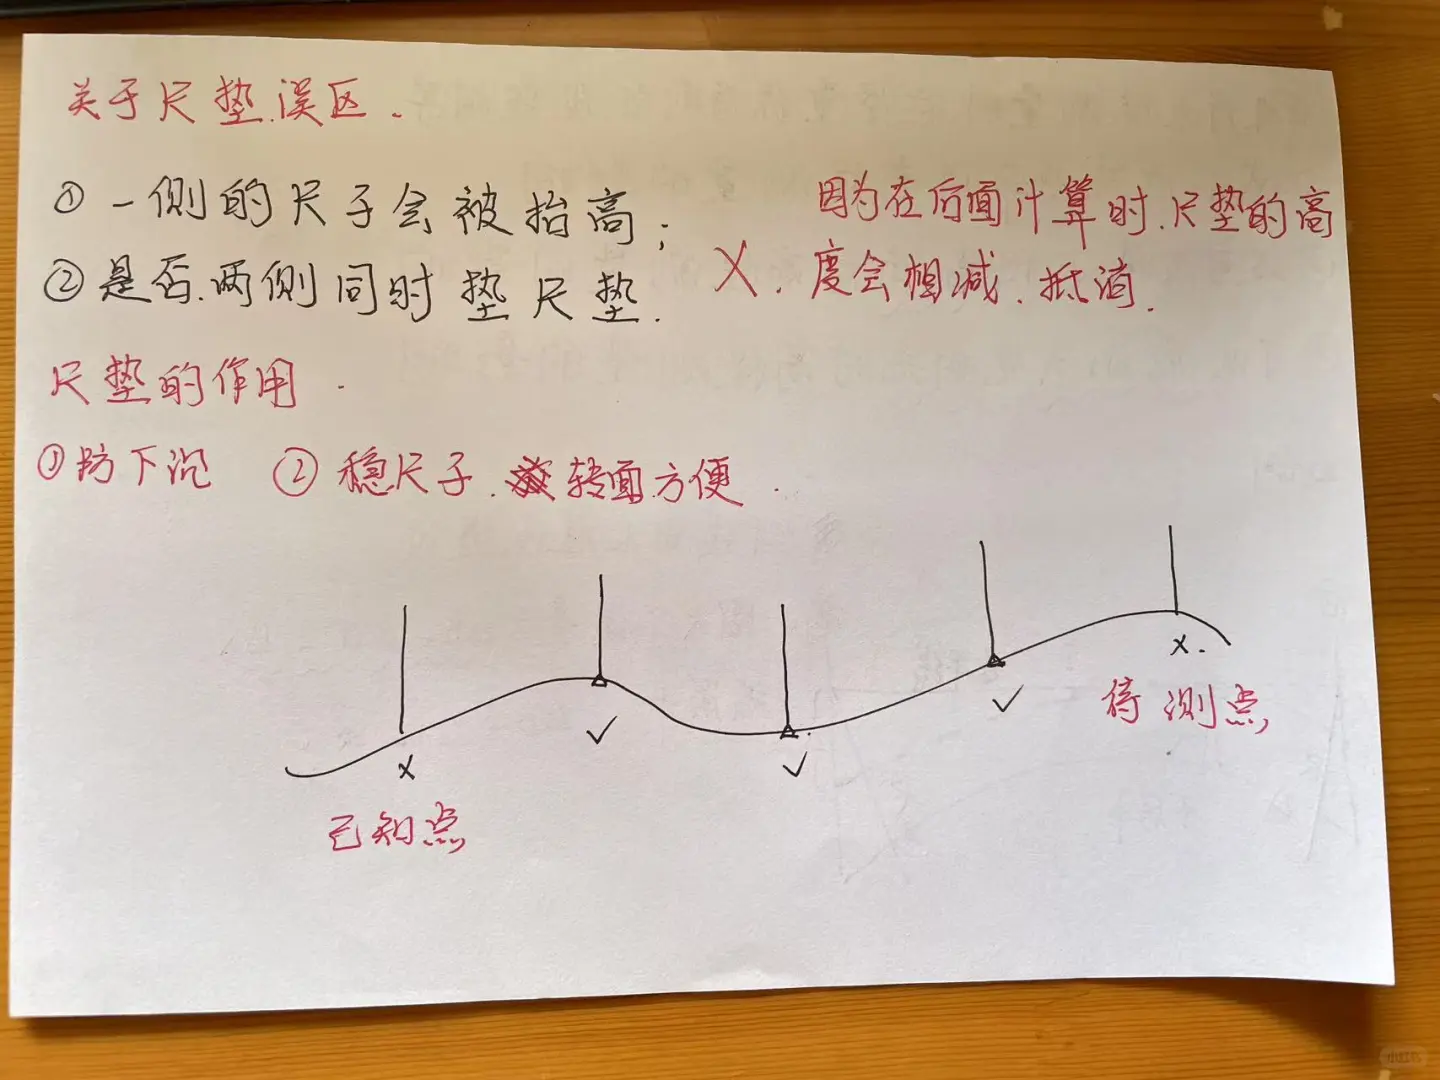 关于尺垫误区.
①一侧的尺子会被抬高;
②是否两侧同时垫尺垫.
X.
因为在后面计算时.尺垫的高
度会相减.抵消.
尺垫的作用.
①防下沉 ②稳尺子.转面方便.
x
✓
✓
✓
x.
已知点
待测点
小红书